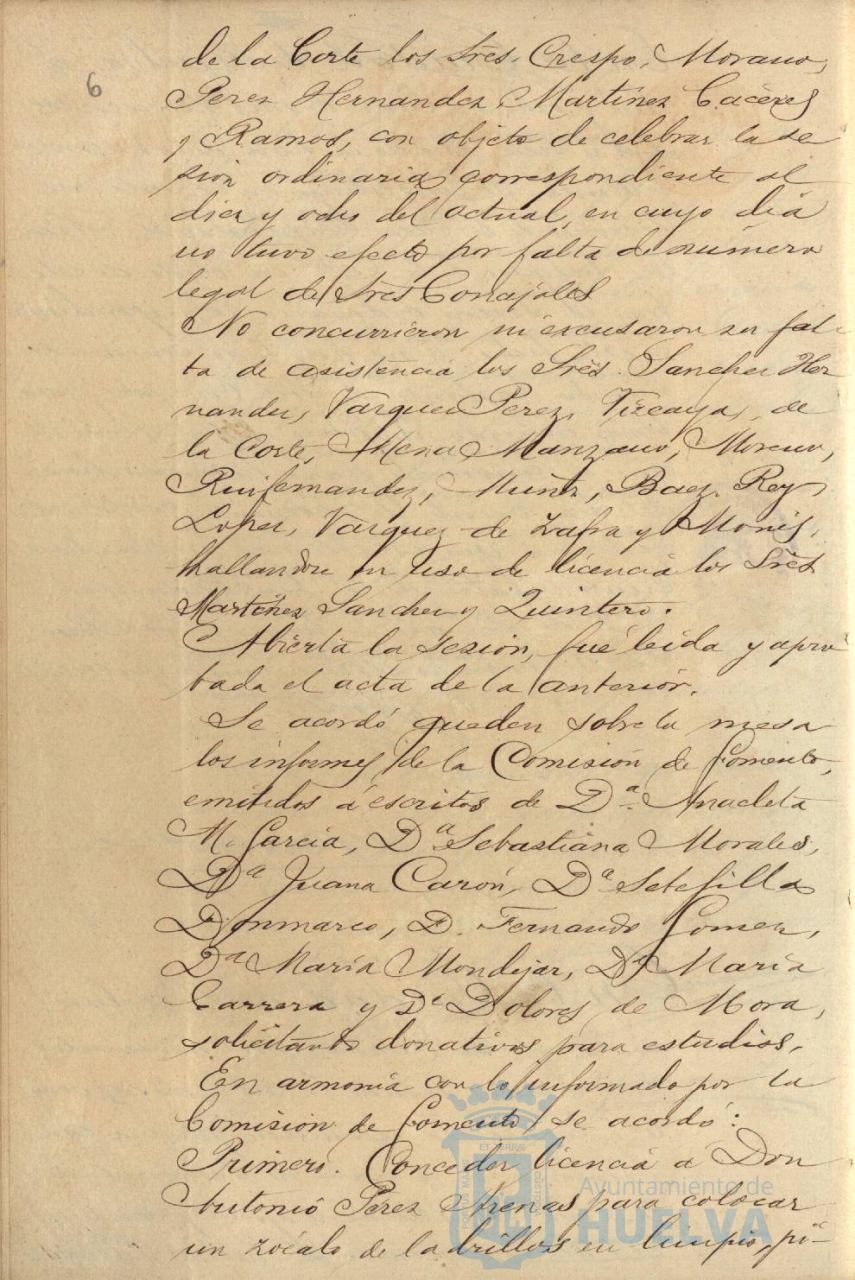 6
de la Corte los Sres. Crespo, Morano,
Perez Hernandez, Martínez Caceres
y Ramos, con objeto de celebrar la se
sión ordinaria correspondiente al
diez y ocho del actual, en cuyo dia
no tuvo efecto por falta de número
legal de Sres Concejales
No concurrieron ni excusaron su fal-
ta de asistencia los Sres. Sanchez Her
nandez, Vazquez Perez, Vizcaya, de
la Corte, Mena Manzano, Moreno,
Ruifernandez, Muñiz, Baez, Rey
Lopez, Vazquez de Zafra y Monis,
hallandose en uso de licencia los Sres
Martínez Sanchez y Quintero.
Abierta la sesión, fué leida y apro
bada el acta de la anterior.
Se acordó queden sobre la mesa
los informes de la Comisión de Fomento,
emitidos á escritos de Dª. Anacleta
M. García, Dª Sebastiana Morales,
Dª Juana Carón, Dª Setefilla
Donmarco, D. Fernando Gomez,
Dª María Mondejar, Dª María
Carrera y Dª Dolores de Mora,
solicitando donativos para estudios.
En armonía con lo informado por la
Comisión de Fomento se acordó:
Primero. Conceder licencia a Don
Antonio Pérez Arenas para colocar
un zócalo de ladrillos en limpio, pó-
Ayuntamiento de
HUELVA